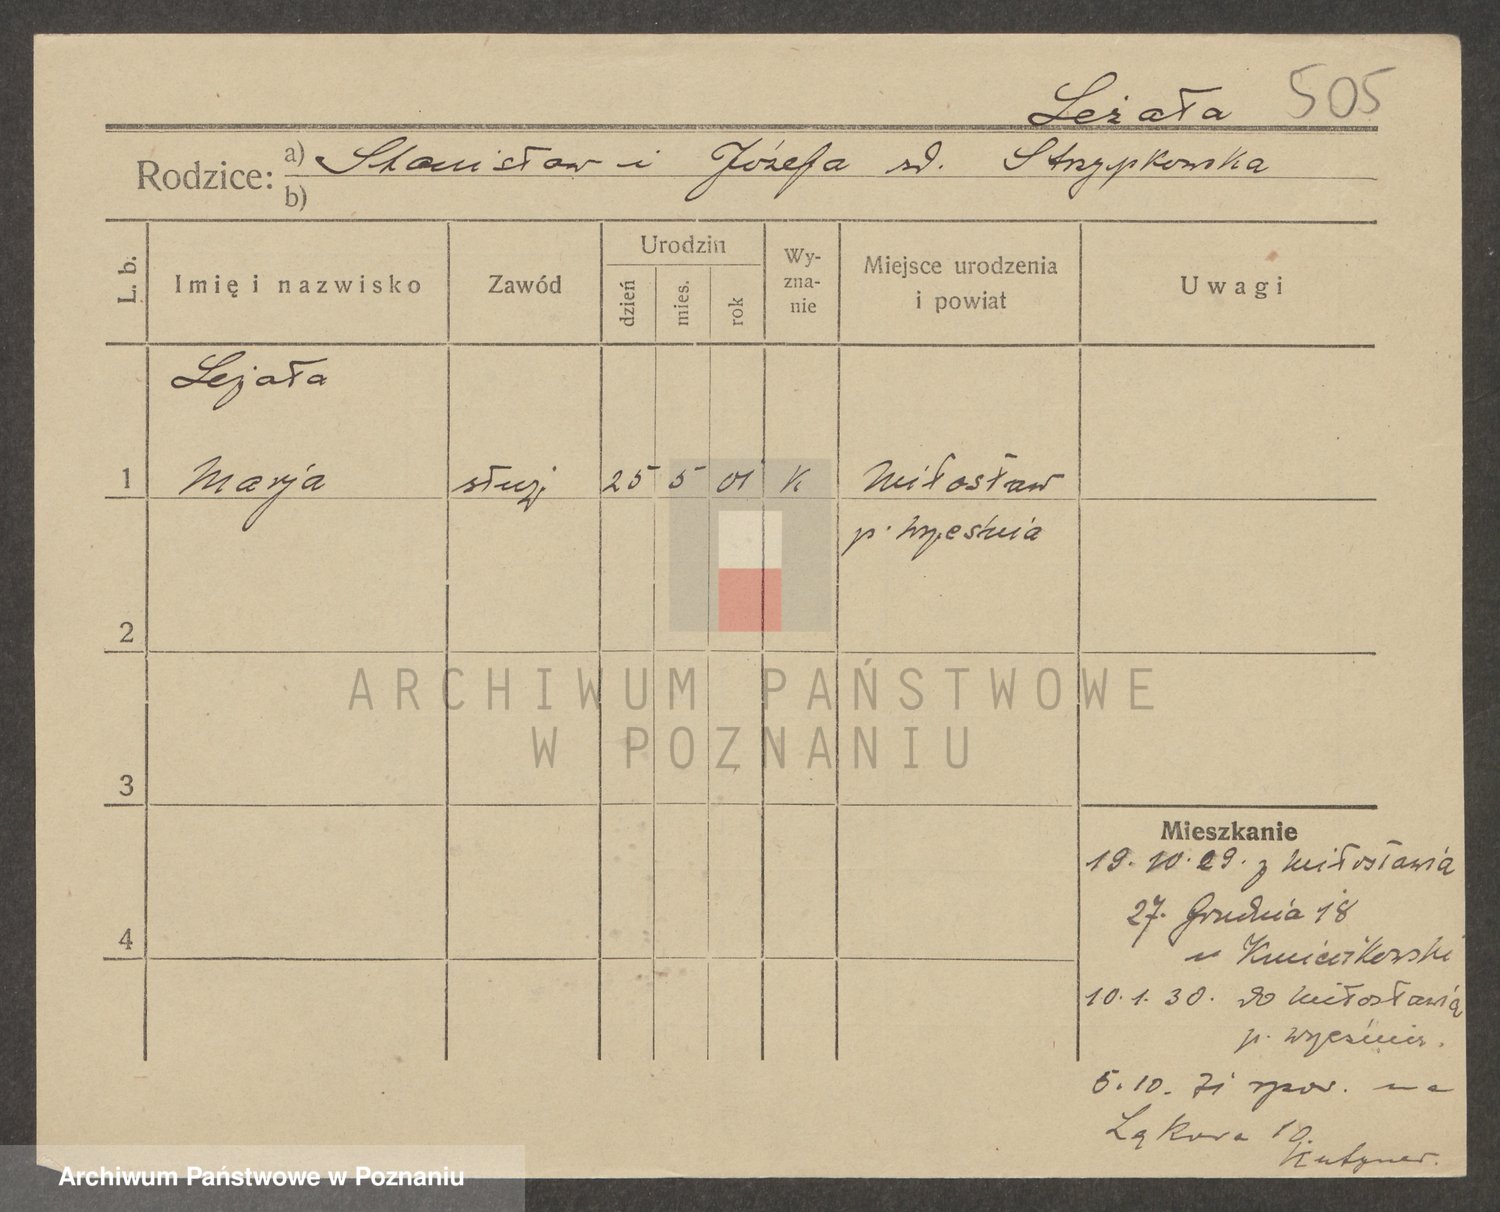 Leżała 505
Rodzice: a) Stanisław i Józefa zd. Strzypkowska
b)
L. b.
Imię i nazwisko
Zawód
Urodzin
dzień
mies.
rok
Wy-
zna-
nie
Miejsce urodzenia
i powiat
Uwagi
Leżała
1 Marja służ. 25 5 01 K Miłosław
p. Września
2
3
4
Mieszkanie
19. 10. 29. z Miłosławia
27. Grudnia 18
u
10. 1. 30. do Miłosławia
p. Września.
5. 10. 31 na
Łąkowa 10
ARCHIWUM PAŃSTWOWE
W POZNANIU
Archiwum Państwowe w Poznaniu